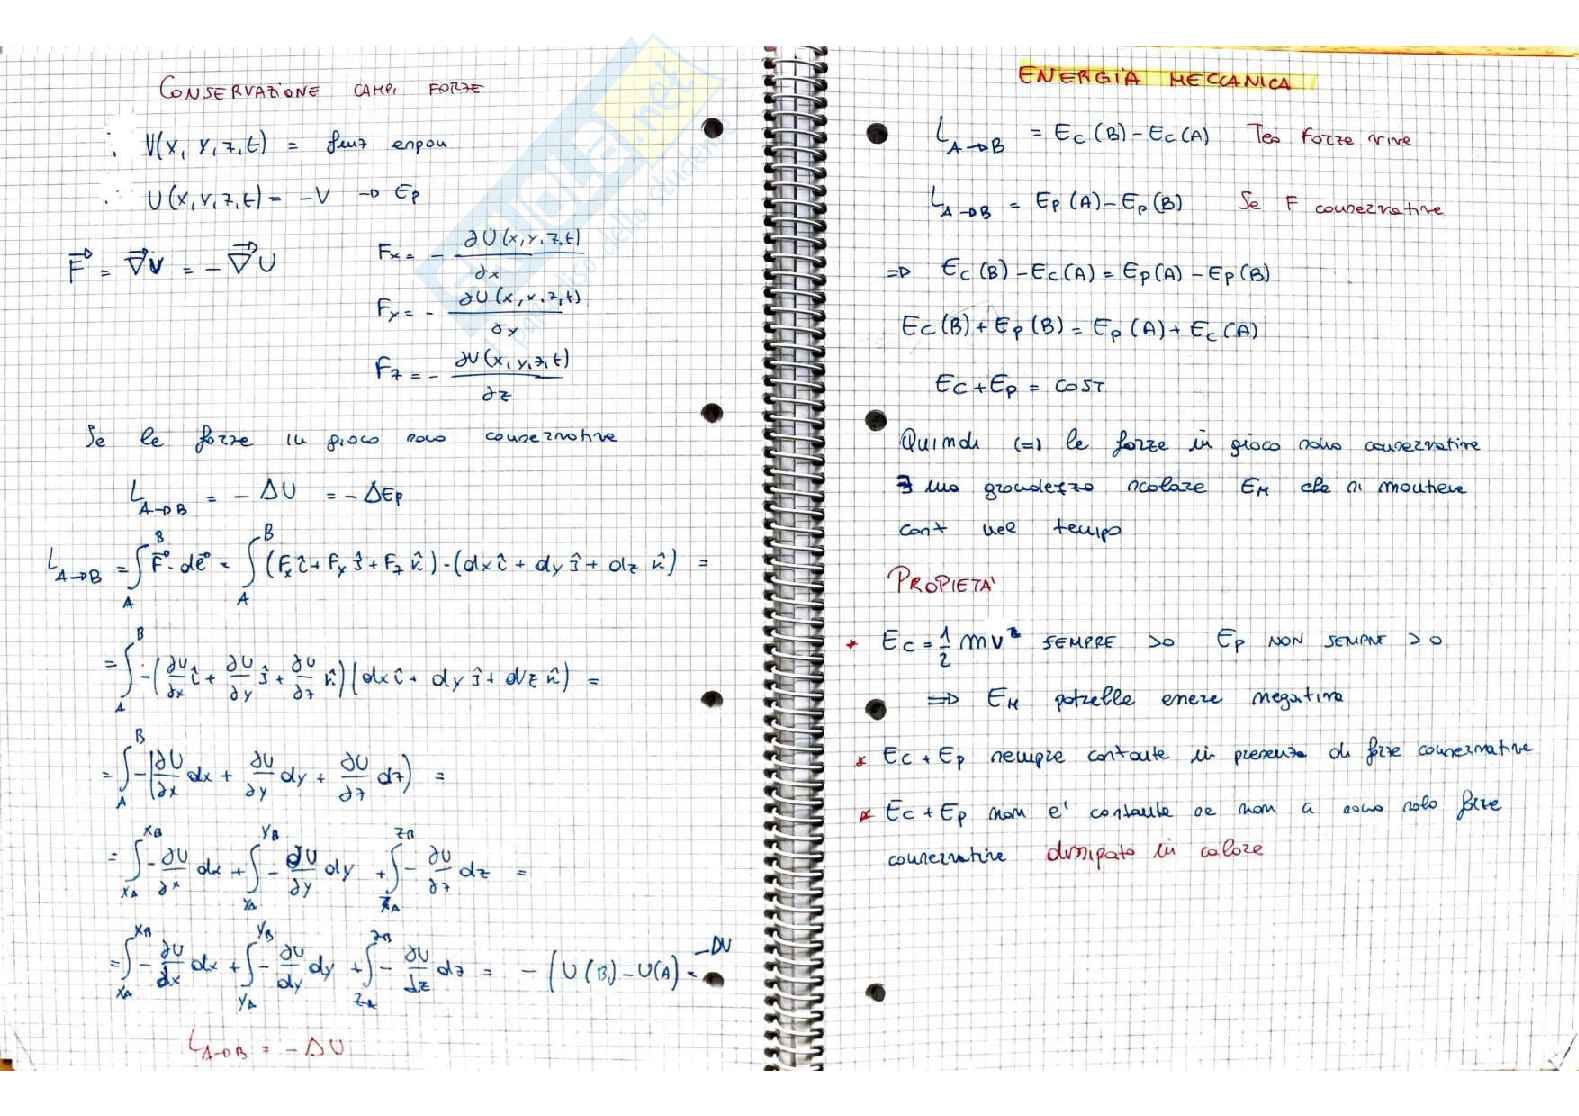 CONSERVAZIONE CAMPI FORZE
V(x, y, z, t) =
U(x, y, z, t) = -V → Ep
F⃗ = ∇⃗V = -∇⃗U
Fx = - ∂U(x, y, z, t)/∂x
Fy = - ∂U(x, y, z, t)/∂y
Fz = - ∂U(x, y, z, t)/∂z
Se le forze in gioco sono conservative
L A→B = - ΔU = - ΔEp
L A→B = ∫_A^B F⃗ · dl⃗ = ∫_A^B (Fx î + Fy ĵ + Fz k̂) · (dx î + dy ĵ + dz k̂) =
= ∫_A^B -(∂U/∂x î + ∂U/∂y ĵ + ∂U/∂z k̂)(dx î + dy ĵ + dz k̂) =
= ∫_A^B -(∂U/∂x dx + ∂U/∂y dy + ∂U/∂z dz) =
= ∫_xA^xB -∂U/∂x dx + ∫_yA^yB -∂U/∂y dy + ∫_zA^zB -∂U/∂z dz =
= ∫_xA^xB -∂U/dx dx + ∫_yA^yB -∂U/dy dy + ∫_zA^zB -∂U/dz dz = - (U(B) - U(A) = -ΔU
L A→B = - ΔU
ENERGIA MECCANICA
L A→B = Ec(B) - Ec(A) Teo Forze vive
L A→B = Ep(A) - Ep(B) Se F conservative
⇒ Ec(B) - Ec(A) = Ep(A) - Ep(B)
Ec(B) + Ep(B) = Ep(A) + Ec(A)
Ec + Ep = COST
Quindi (=) le forze in gioco sono conservative
∃ una grandezza scalare EM che si mantiene
cost nel tempo
PROPIETA'
* Ec = 1/2 mv² SEMPRE >0 Ep NON SEMPRE >0
⇒ EM potrebbe essere negativa
* Ec + Ep sempre costante in presenza di forze conservative
* Ec + Ep non e' costante se non ci sono solo forze
conservative dissipato in calore